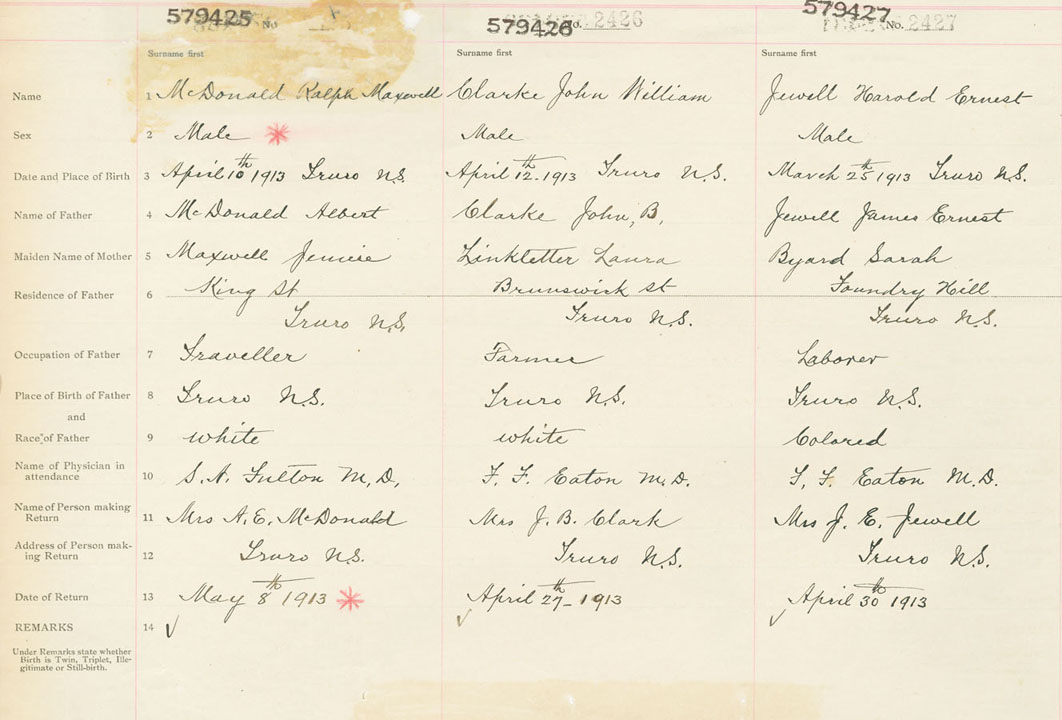 579425 No.
579426 No. 2426
579427 No. 2427
Surname first Surname first Surname first
Name 1 McDonald Ralph Maxwell Clarke John William Jewell Harold Ernest
Sex 2 Male Male Male
Date and Place of Birth 3 April 10th 1913 Truro N.S. April 12th 1913 Truro N.S. March 25th 1913 Truro N.S.
Name of Father 4 McDonald Albert Clarke John, B. Jewell James Ernest
Maiden Name of Mother 5 Maxwell Jennie Linkletter Laura Byard Sarah
Residence of Father 6 King St Brunswick St Foundry Hill
Truro N.S. Truro N.S. Truro N.S.
Occupation of Father 7 Traveller Farmer Laborer
Place of Birth of Father 8 Truro N.S. Truro N.S. Truro N.S.
and
Race of Father 9 white white Colored
Name of Physician in
attendance 10 S. A. Fulton M.D. F. F. Eaton M.D. F. F. Eaton M.D.
Name of Person making
Return 11 Mrs A. E. McDonald Mrs J. B. Clark Mrs J. E. Jewell
Address of Person mak-
ing Return 12 Truro N.S. Truro N.S. Truro N.S.
Date of Return 13 May 8th 1913 April 27th 1913 April 30th 1913
REMARKS 14
Under Remarks state whether
Birth is Twin, Triplet, Ille-
gitimate or Still-birth.